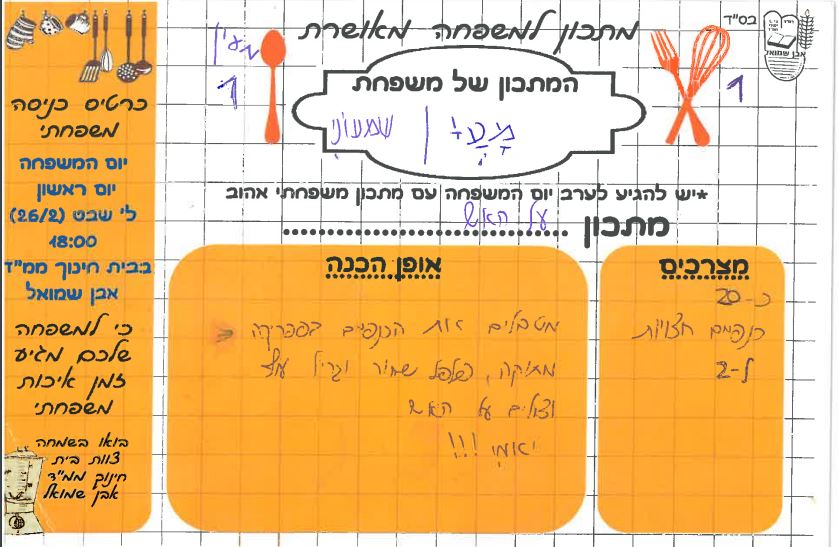 בס"ד
אבן שמואל
מתכון למשפחה מאושרת
מעין
1
1
המתכון של משפחת
שמעוני
*יש להגיע לערב יום המשפחה עם מתכון משפחתי אהוב
מתכון על האש
מצרכים
כ-20
כנפיים חצויות
ל-2
אופן הכנה
מטבלים את הכנפיים בפפריקה
מתוקה, פלפל שחור וגריל עוף
וצולים על האש
יאומי!!!
כרטיס כניסה
משפחתי
יום המשפחה
יום ראשון
ל' שבט (26/2)
18:00
בבית חינוך ממ"ד
אבן שמואל
כי למשפחה
שלכם מגיע
זמן איכות
משפחתי
בואו בשמחה
צוות בית
חינוך ממ"ד
אבן שמואל